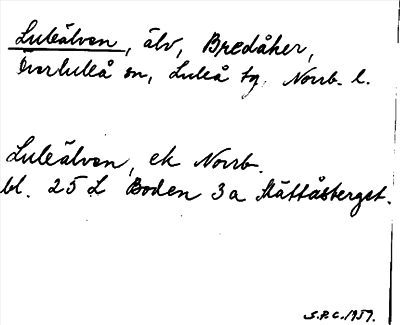 Luleälven, älv, Bredåker,
Överluleå sn, Luleå tg, Norrb. l.
Luleälven, ek Norrb.
bl. 25 L Boden 3a Måttåsberget.
S.P.C. 1957.